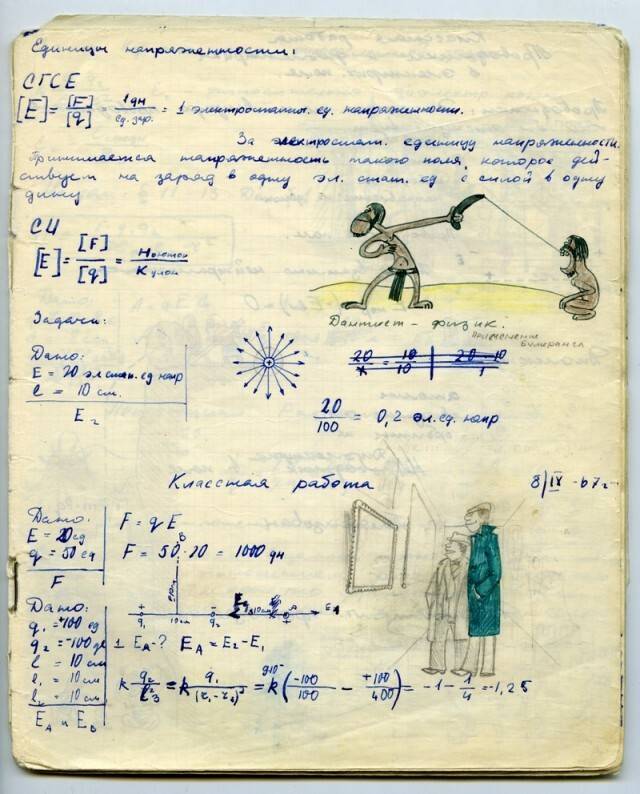 Единицы напряженности:
СГСЕ
[E] = [F]/[q] = 1 дн/ед. зар. = 1 электростат. ед. напряженности.
За электростат. единицу напряженности
принимается напряженность такого поля, которое дей-
ствует на заряд в одну эл. стат. ед с силой в одну
дину
СИ
[E] = [F]/[q] = Ньютон/Кулон
Дантист – физик.
применение
Задачи:
Дано:
E = 20 эл. стат. ед напр
l = 10 см.
E₂
20/100 = 0,2 эл. ед. напр
Классная работа 8/IX -67г
Дано:
E = 20 ед
q = 50 ед
F
F = qE
F = 50 · 20 = 1000 дн
Дано:
q₁ = +100 ед
q₂ = -100 ед
l = 10 см
l₁ = 10 см
10 см
E_A и E_B
B
10 см
q₁ 10 см q₂ 10 см
1 E_A-? E_A = E₂ - E₁
= k(-100/100 - +100/400) = -1 - 1/4 = -1,25